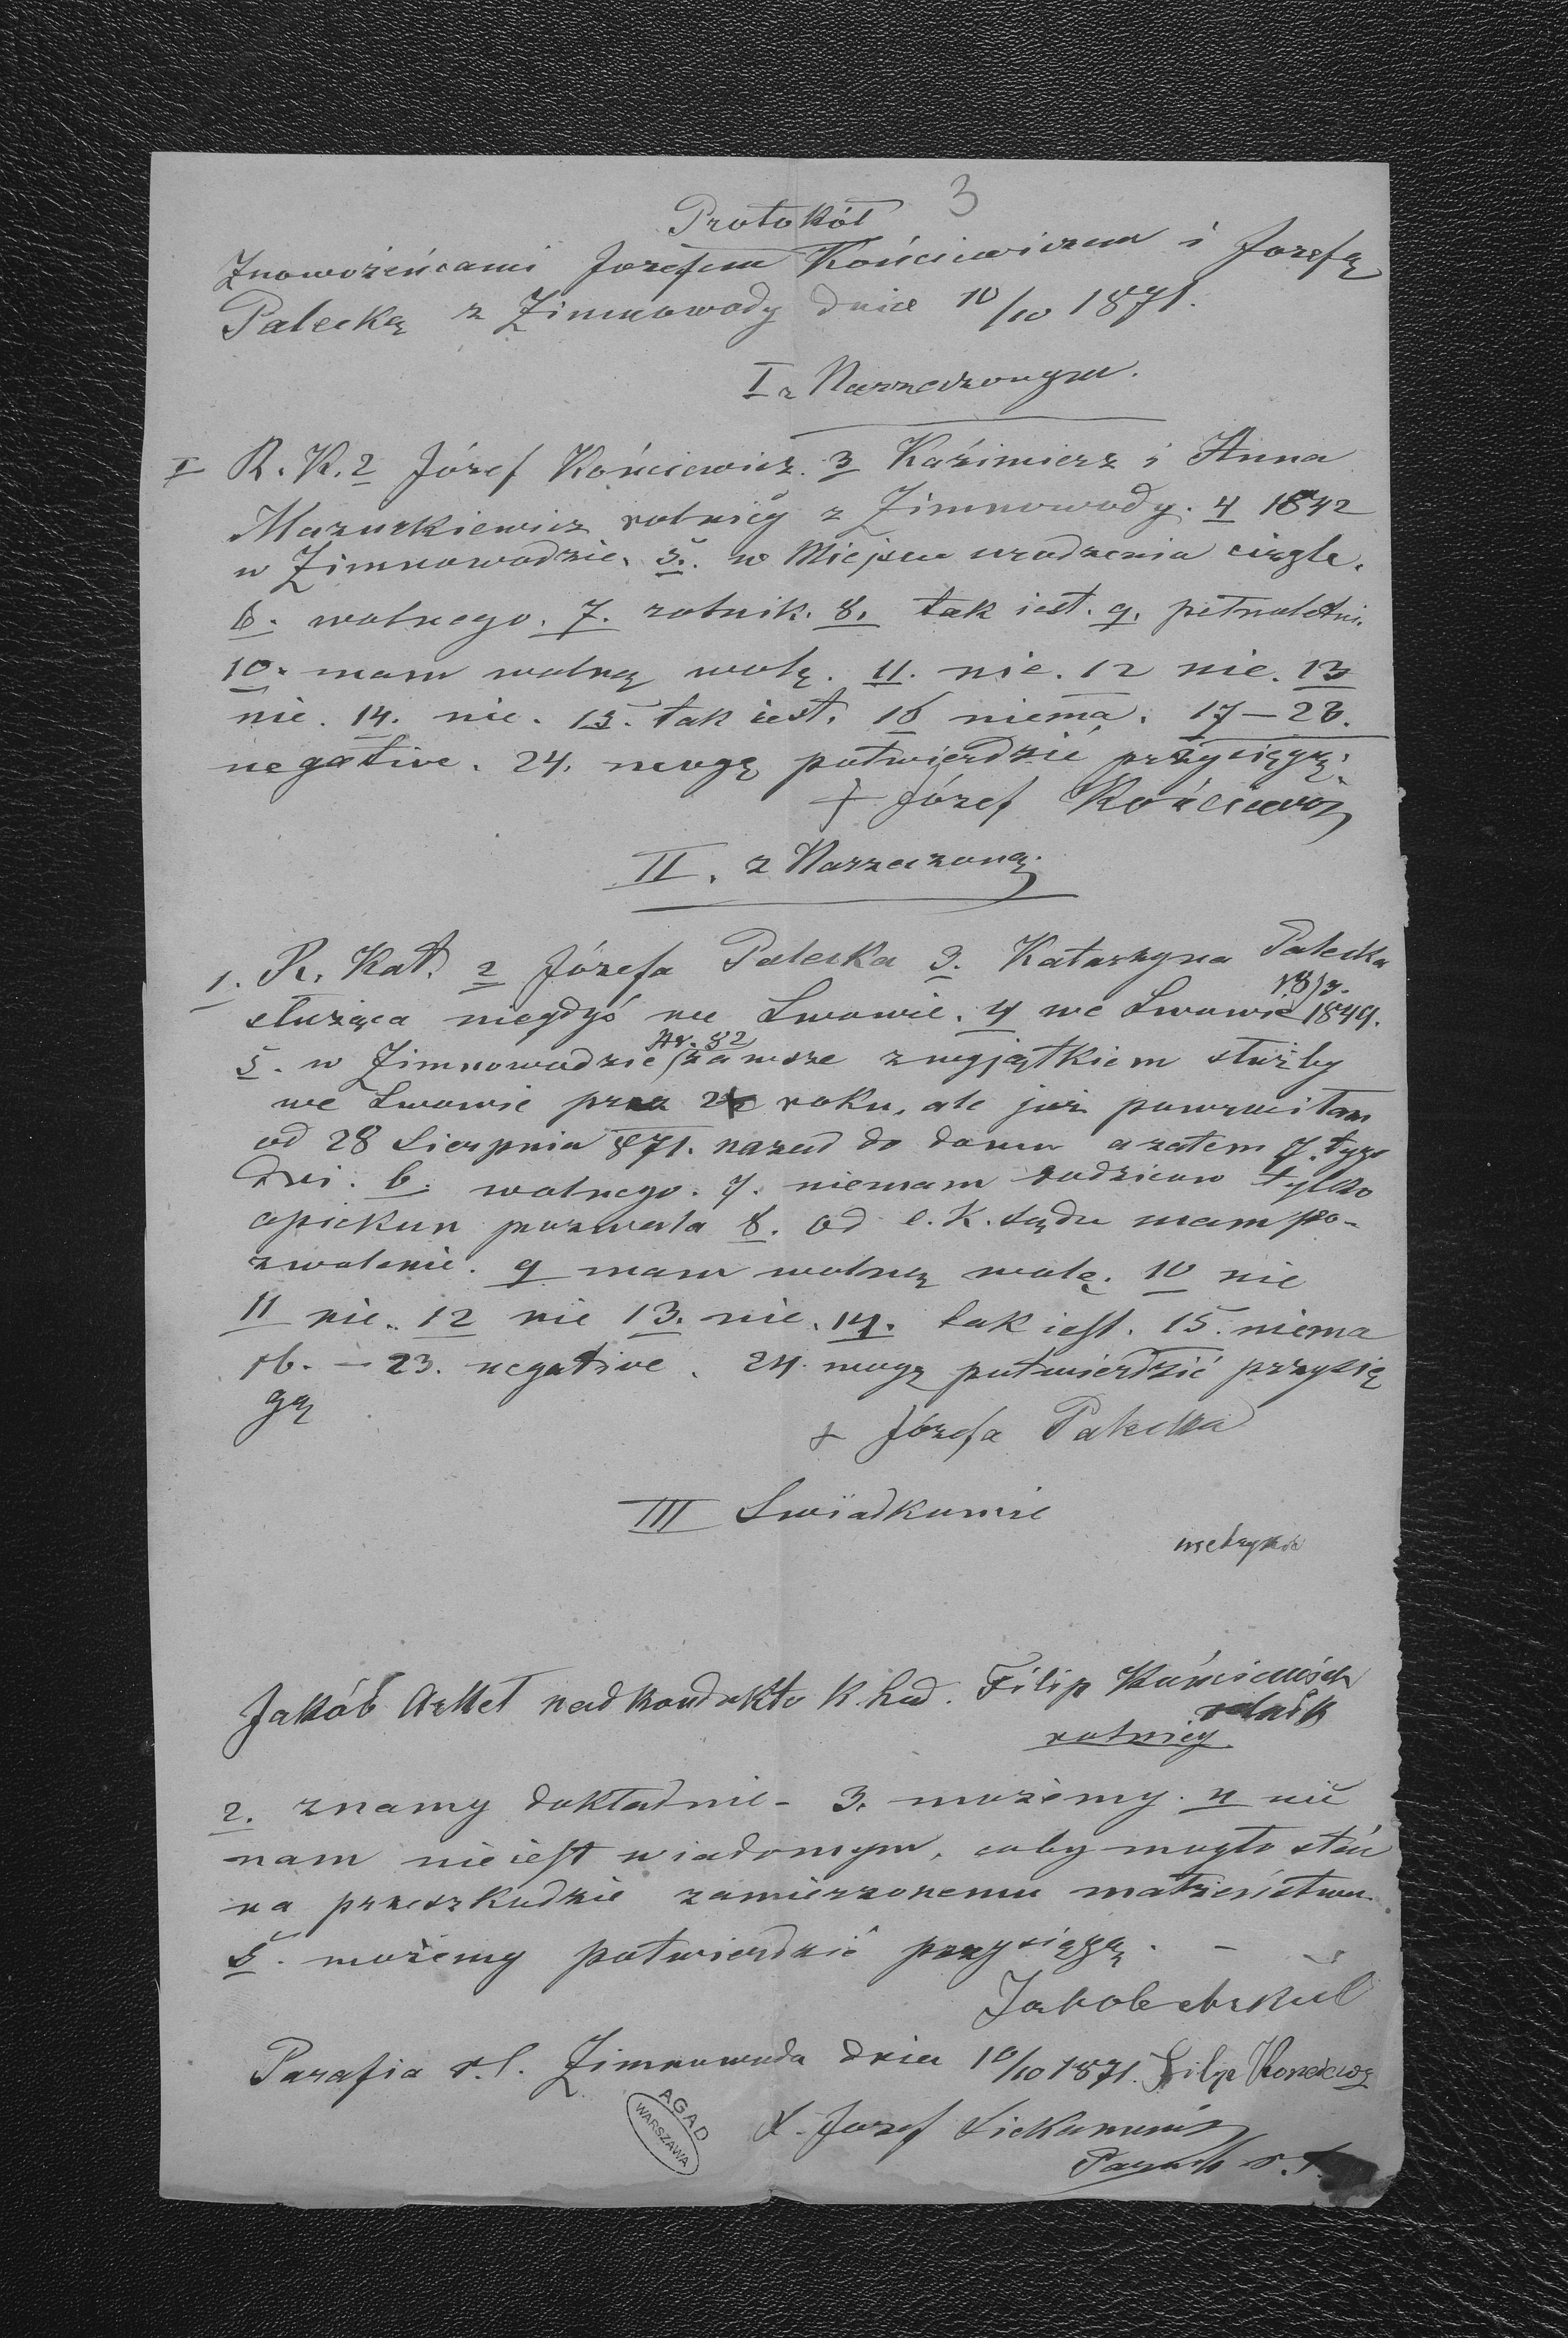 3
Protokół
Znowożeńcami Jozefem Kościewiczem i Jozefą
Palecką z Zimnowody dnia 10/10 1871.
I z Narzeczonym.
I R. K. 2 Józef Kościewicz. 3 Kaźimierz i Anna
Mazurkiewicz rolnicy z Zimnowody. 4 1842
w Zimnowodzie. 5. w Miejscu urodzenia ciągle.
6. wolnego. 7. rolnik. 8. tak iest. 9. pełnoletni.
10. mam wolną wolę. 11. nie. 12 nie. 13
nie. 14. nie. 15. tak iest. 16 niema. 17–23.
negative. 24. mogę potwierdzić przysięgą.
+ Józef Kościewicz
II. z Narzeczoną.
1. R. Kat. 2 Józefa Palecka 3. Katarzyna Palecka
służąca niegdyś we Lwowie. 4 we Lwowie 18/3. 1849.
5. w Zimnowodzie Nr. 82 zawsze zwyjątkiem służby
we Lwowie przez 2 roku, ale już powrócitam
od 28 Sierpnia 871. nazad do domu a zatem 7. tygo
dni. 6. wolnego. 7. niemam rodziców tylko
opiekun pozwala 8. od c. k. sądu mam po-
zwolenie. 9 mam wolną wolę. 10 nie
11 nie. 12 nie 13. nie. 14. tak iest. 15. niema
16. – 23. negative. 24. mogę potwierdzić przysię
gą
+ Józefa Palecka
III Swiadkowie
metryka
Jakób nadkondukto K. Lud. Filip Kościewicz
rolnik
rolnicy
2. znamy dokładnie – 3. możemy. 4 nic
nam nie iest wiadomym, coby mogło stać
na przeszkodzie zamierzonemu małżeństwu.
5. możemy potwierdzić przysięgą. –
Jakob
Parafia r. l. Zimnawoda dnia 10/10 1871. Filip
X. Jozef
Paroch r. l.
AGAD
WARSZAWA